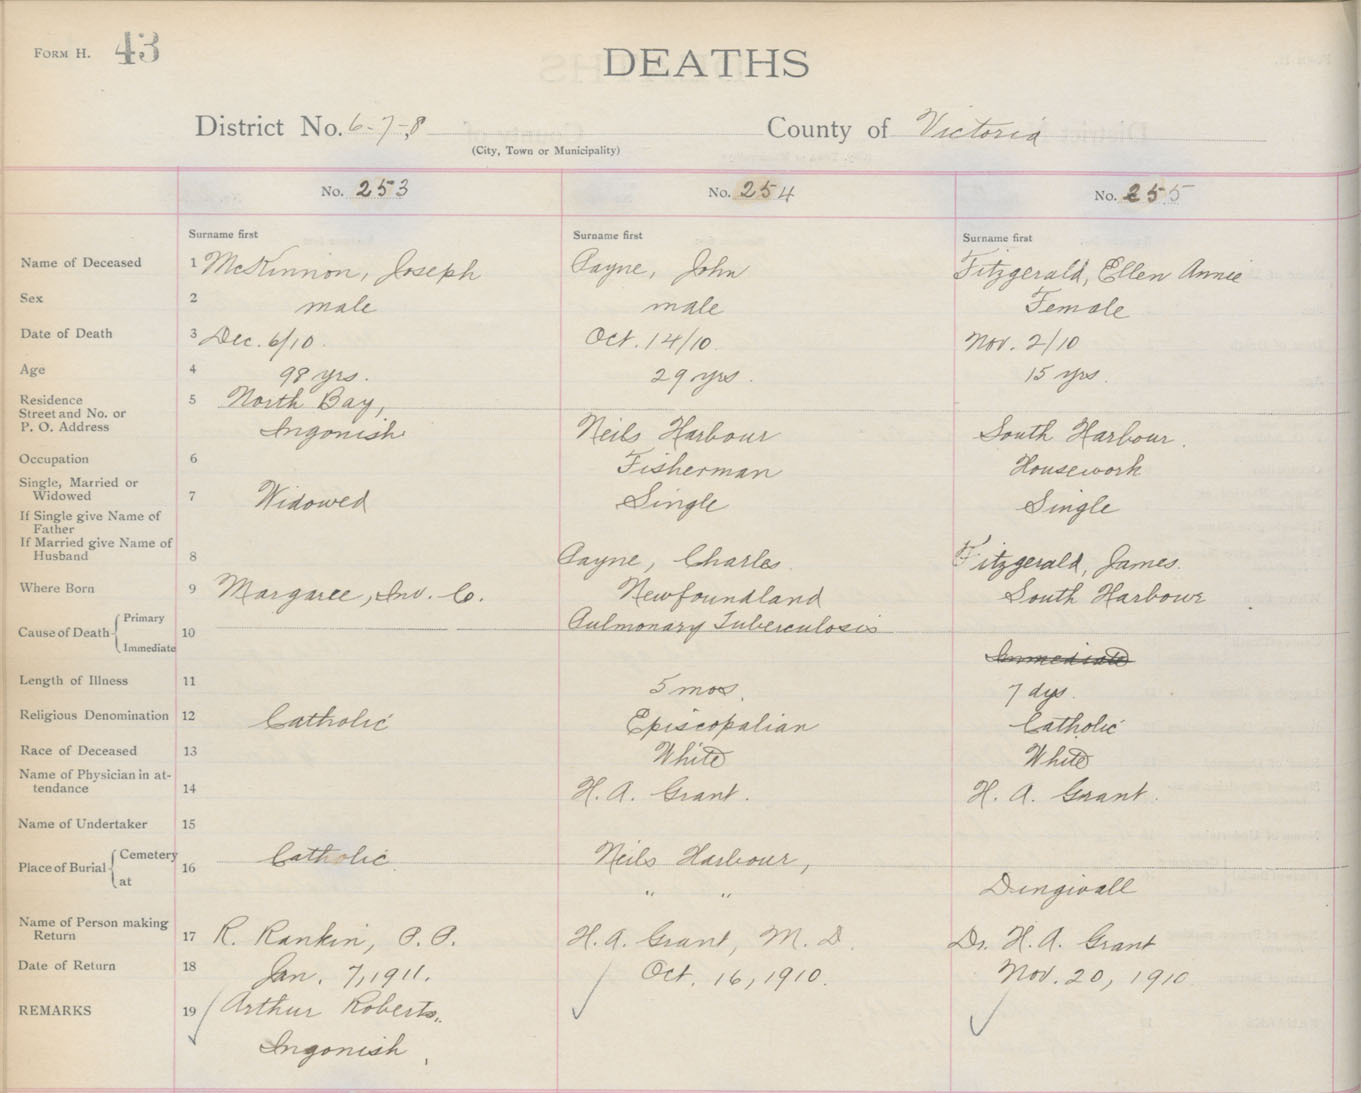 FORM H. 43
DEATHS
District No. 6-7-,8 County of Victoria
(City, Town or Municipality)
No. 253 No. 254 No. 255
Surname first Surname first Surname first
Name of Deceased 1 McKinnon, Joseph Payne, John Fitzgerald, Ellen Annie
Sex 2 male male Female
Date of Death 3 Dec. 6/10. Oct. 14/10. Nov. 2/10
Age 4 98 yrs. 29 yrs. 15 yrs.
Residence 5 North Bay,
Street and No. or
P. O. Address Ingonish Neils Harbour South Harbour.
Occupation 6 Fisherman Housework
Single, Married or
Widowed 7 Widowed Single Single
If Single give Name of
Father
If Married give Name of
Husband 8 Payne, Charles. Fitzgerald, James.
Where Born 9 Margaree, Inv. C. Newfoundland South Harbour
Cause of Death Primary 10 Pulmonary Tuberculosis
Immediate Immediate
Length of Illness 11 5 mos. 7 dys.
Religious Denomination 12 Catholic Episcopalian Catholic
Race of Deceased 13 White White
Name of Physician in at-
tendance 14 H. A. Grant. H. A. Grant.
Name of Undertaker 15
Place of Burial Cemetery 16 Catholic. Neils Harbour,
at " " Dingwall
Name of Person making
Return 17 R. Rankin, P. P. H. A. Grant, M. D. Dr. H. A. Grant
Date of Return 18 Jan. 7, 1911. Oct. 16, 1910. Nov. 20, 1910
REMARKS 19 Arthur Roberts,
Ingonish,